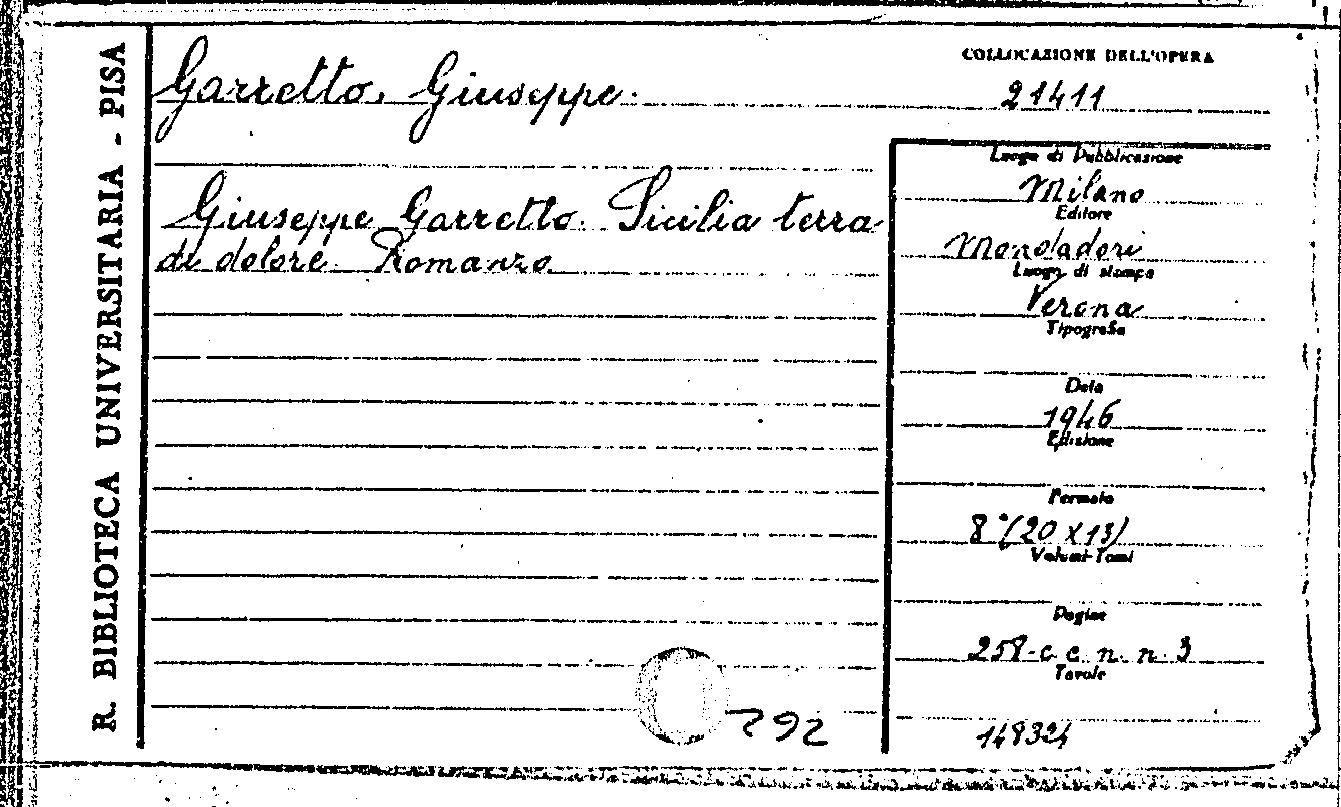 R. BIBLIOTECA UNIVERSITARIA - PISA
Garretto, Giuseppe.
Giuseppe Garretto. Sicilia terra
di dolore. Romanzo
792
COLLOCAZIONE DELL'OPERA
21411
Luogo di Pubblicazione
Milano
Editore
Mondadori
Luogo di stampa
Verona
Tipografia
Data
1946
Edizione
Formato
8°(20 x 13)
Volumi-Tomi
Pagine
258-c.c. n. n. 3
Tavole
148324